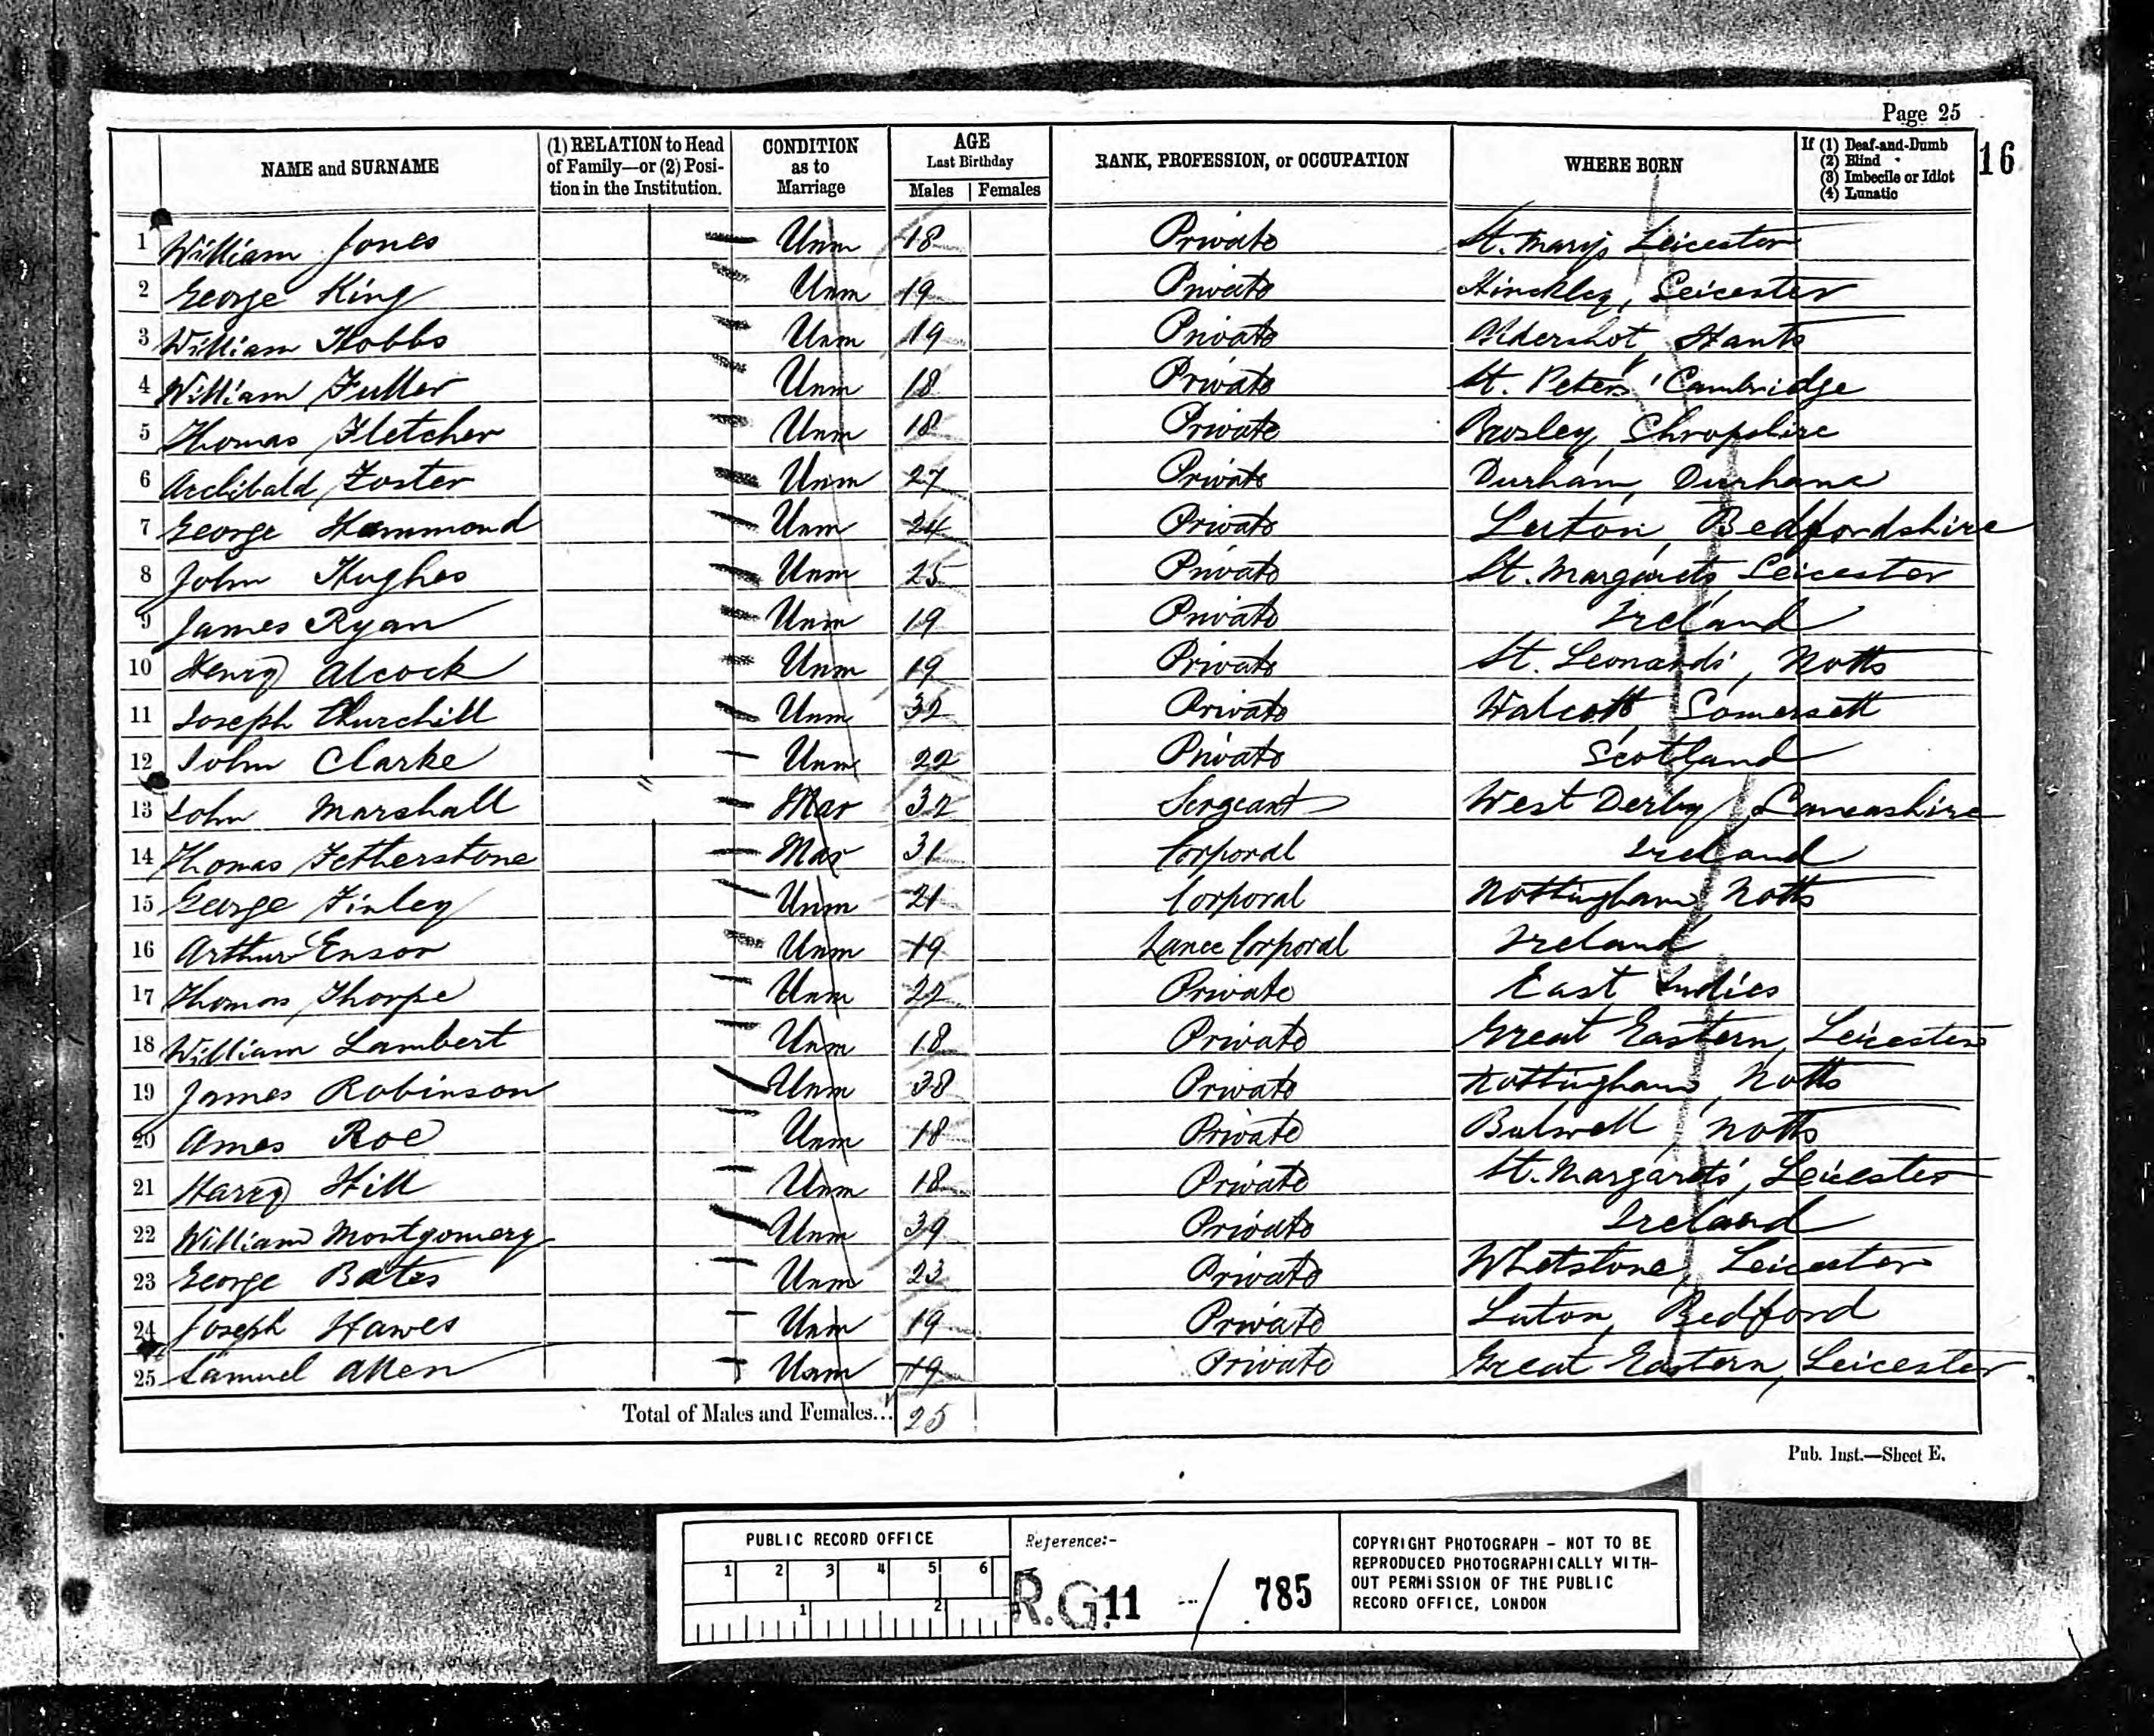 Page 25
16
NAME and SURNAME
(1) RELATION to Head of Family—or (2) Position in the Institution.
CONDITION as to Marriage
AGE Last Birthday
Males Females
RANK, PROFESSION, or OCCUPATION
WHERE BORN
If (1) Deaf-and-Dumb
(2) Blind
(3) Imbecile or Idiot
(4) Lunatic
1 William Jones Unm 18 Private St. Marys Leicester
2 George King Unm 19 Private Hinckley, Leicester
3 William Hobbs Unm 19 Private Aldershot Hants
4 William Fuller Unm 18 Private St. Peters Cambridge
5 Thomas Fletcher Unm 18 Private Brosley, Shropshire
6 Archibald Foster Unm 27 Private Durham, Durham
7 George Hammond Unm 24 Private Luton, Bedfordshire
8 John Hughes Unm 25 Private St. Margarets, Leicester
9 James Ryan Unm 19 Private Ireland
10 Henry Alcock Unm 19 Private St. Leonards, Notts
11 Joseph Churchill Unm 32 Private Walcott, Somersett
12 John Clarke Unm 22 Private Scotland
13 John Marshall Mar 32 Sergeant West Derby, Lancashire
14 Thomas Fetherstone Mar 31 Corporal Ireland
15 George Finley Unm 21 Corporal Nottingham, Notts
16 Arthur Ensor Unm 19 Lance Corporal Ireland
17 Thomas Thorpe Unm 22 Private East Indies
18 William Lambert Unm 18 Private Great Eastern, Leicester
19 James Robinson Unm 38 Private Nottingham, Notts
20 Ames Roe Unm 18 Private Bulwell, Notts
21 Harry Hill Unm 18 Private St. Margarets, Leicester
22 William Montgomery Unm 39 Private Ireland
23 George Bates Unm 23 Private Whetstone, Leicester
24 Joseph Hawes Unm 19 Private Luton, Bedford
25 Samuel Allen Unm 19 Private Great Eastern, Leicester
Total of Males and Females... 25
Pub. Inst.—Sheet E.
PUBLIC RECORD OFFICE
1 2 3 4 5 6
1 2
Reference:-
R.G. 11 / 785
COPYRIGHT PHOTOGRAPH - NOT TO BE
REPRODUCED PHOTOGRAPHICALLY WITH-
OUT PERMISSION OF THE PUBLIC
RECORD OFFICE, LONDON